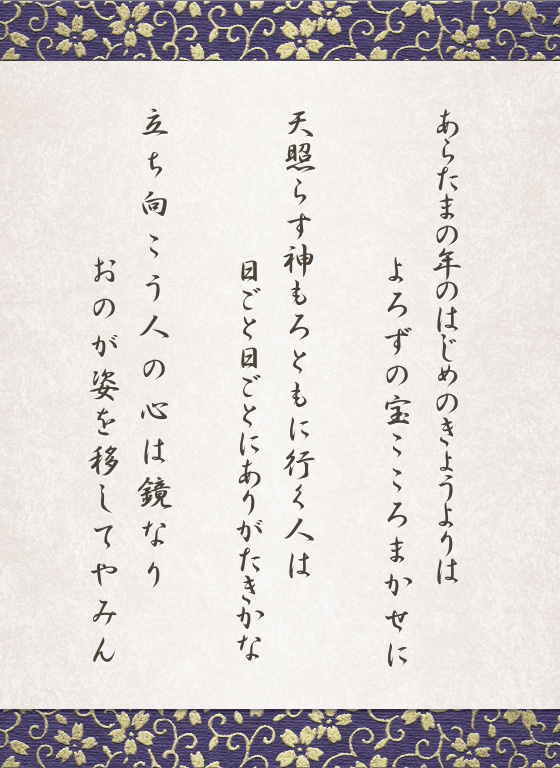 あらたまの年のはじめのきようよりは
よろずの宝こころまかせに
天照らす神もろともに行く人は
日ごと日ごとにありがたきかな
立ち向こう人の心は鏡なり
おのが姿を移してやみん